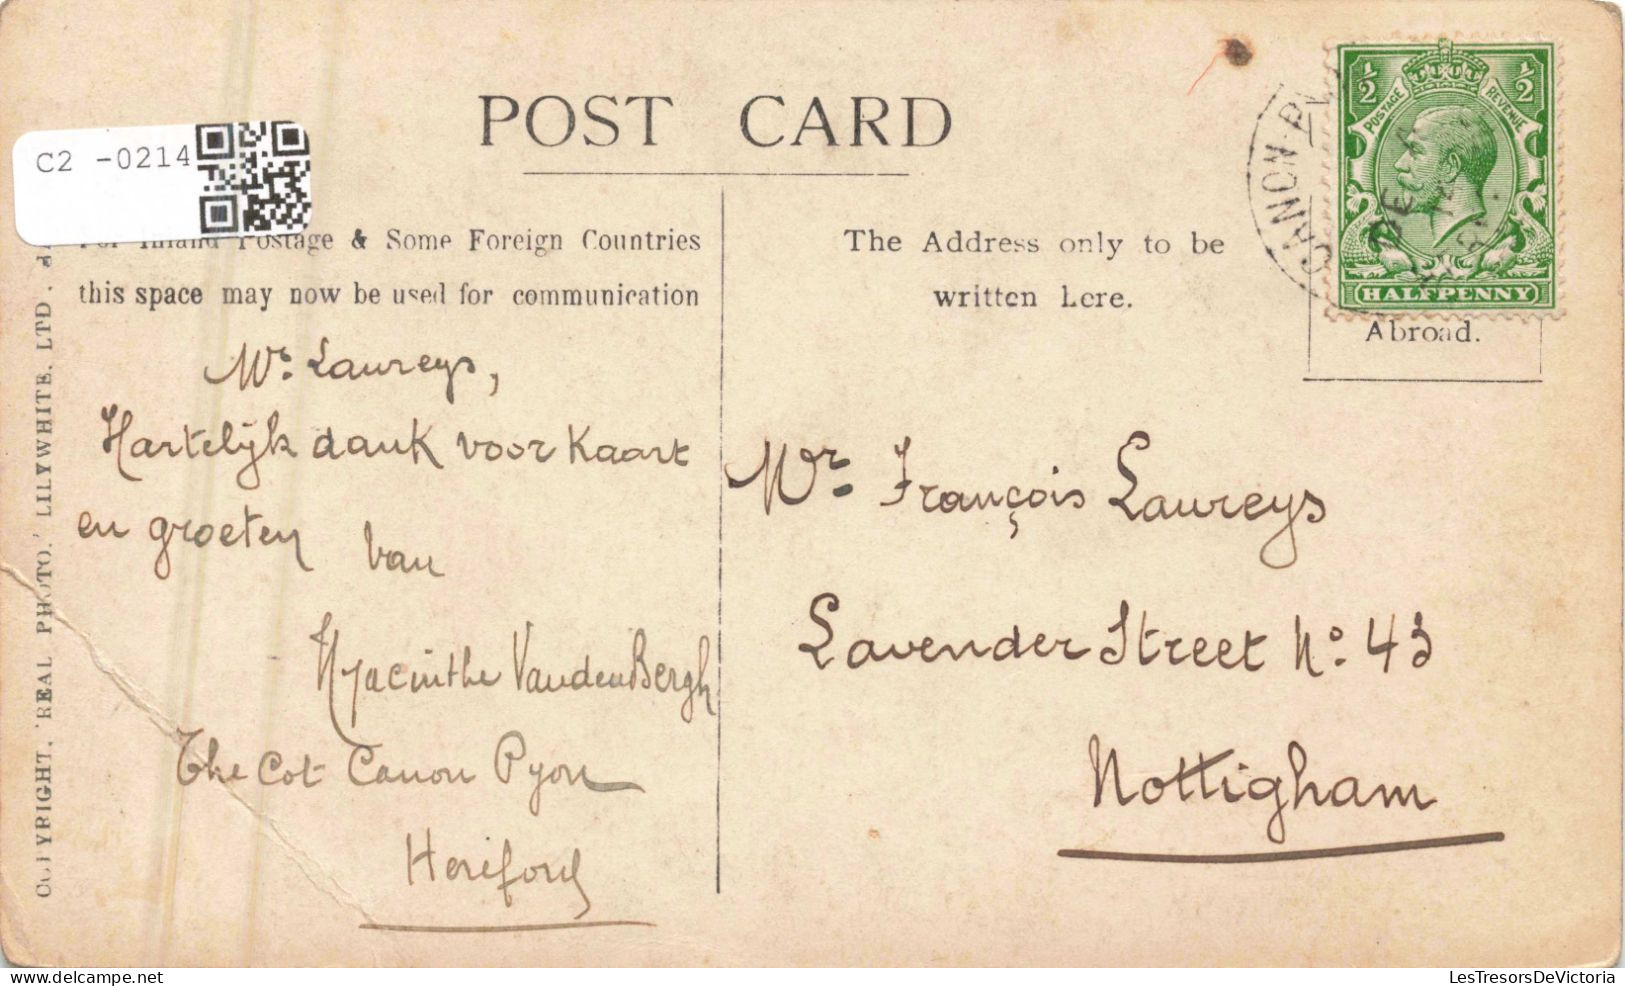 POST CARD
C2 -0214
For Inland Postage & Some Foreign Countries
this space may now be used for communication
The Address only to be
written here.
½ ½
POSTAGE REVENUE
HALFPENNY
CANON
Abroad.
COPYRIGHT. 'REAL PHOTO.' LILYWHITE. LTD.
Mr. Laureys,
Hartelijk dank voor kaart
en groeten
van
Hyacinthe VandenBergh
The Cot Canon Pyon
Hereford
Mr. François Laureys
Lavender Street No. 43
Nottigham
LesTresorsDeVictoria
delcampe.net